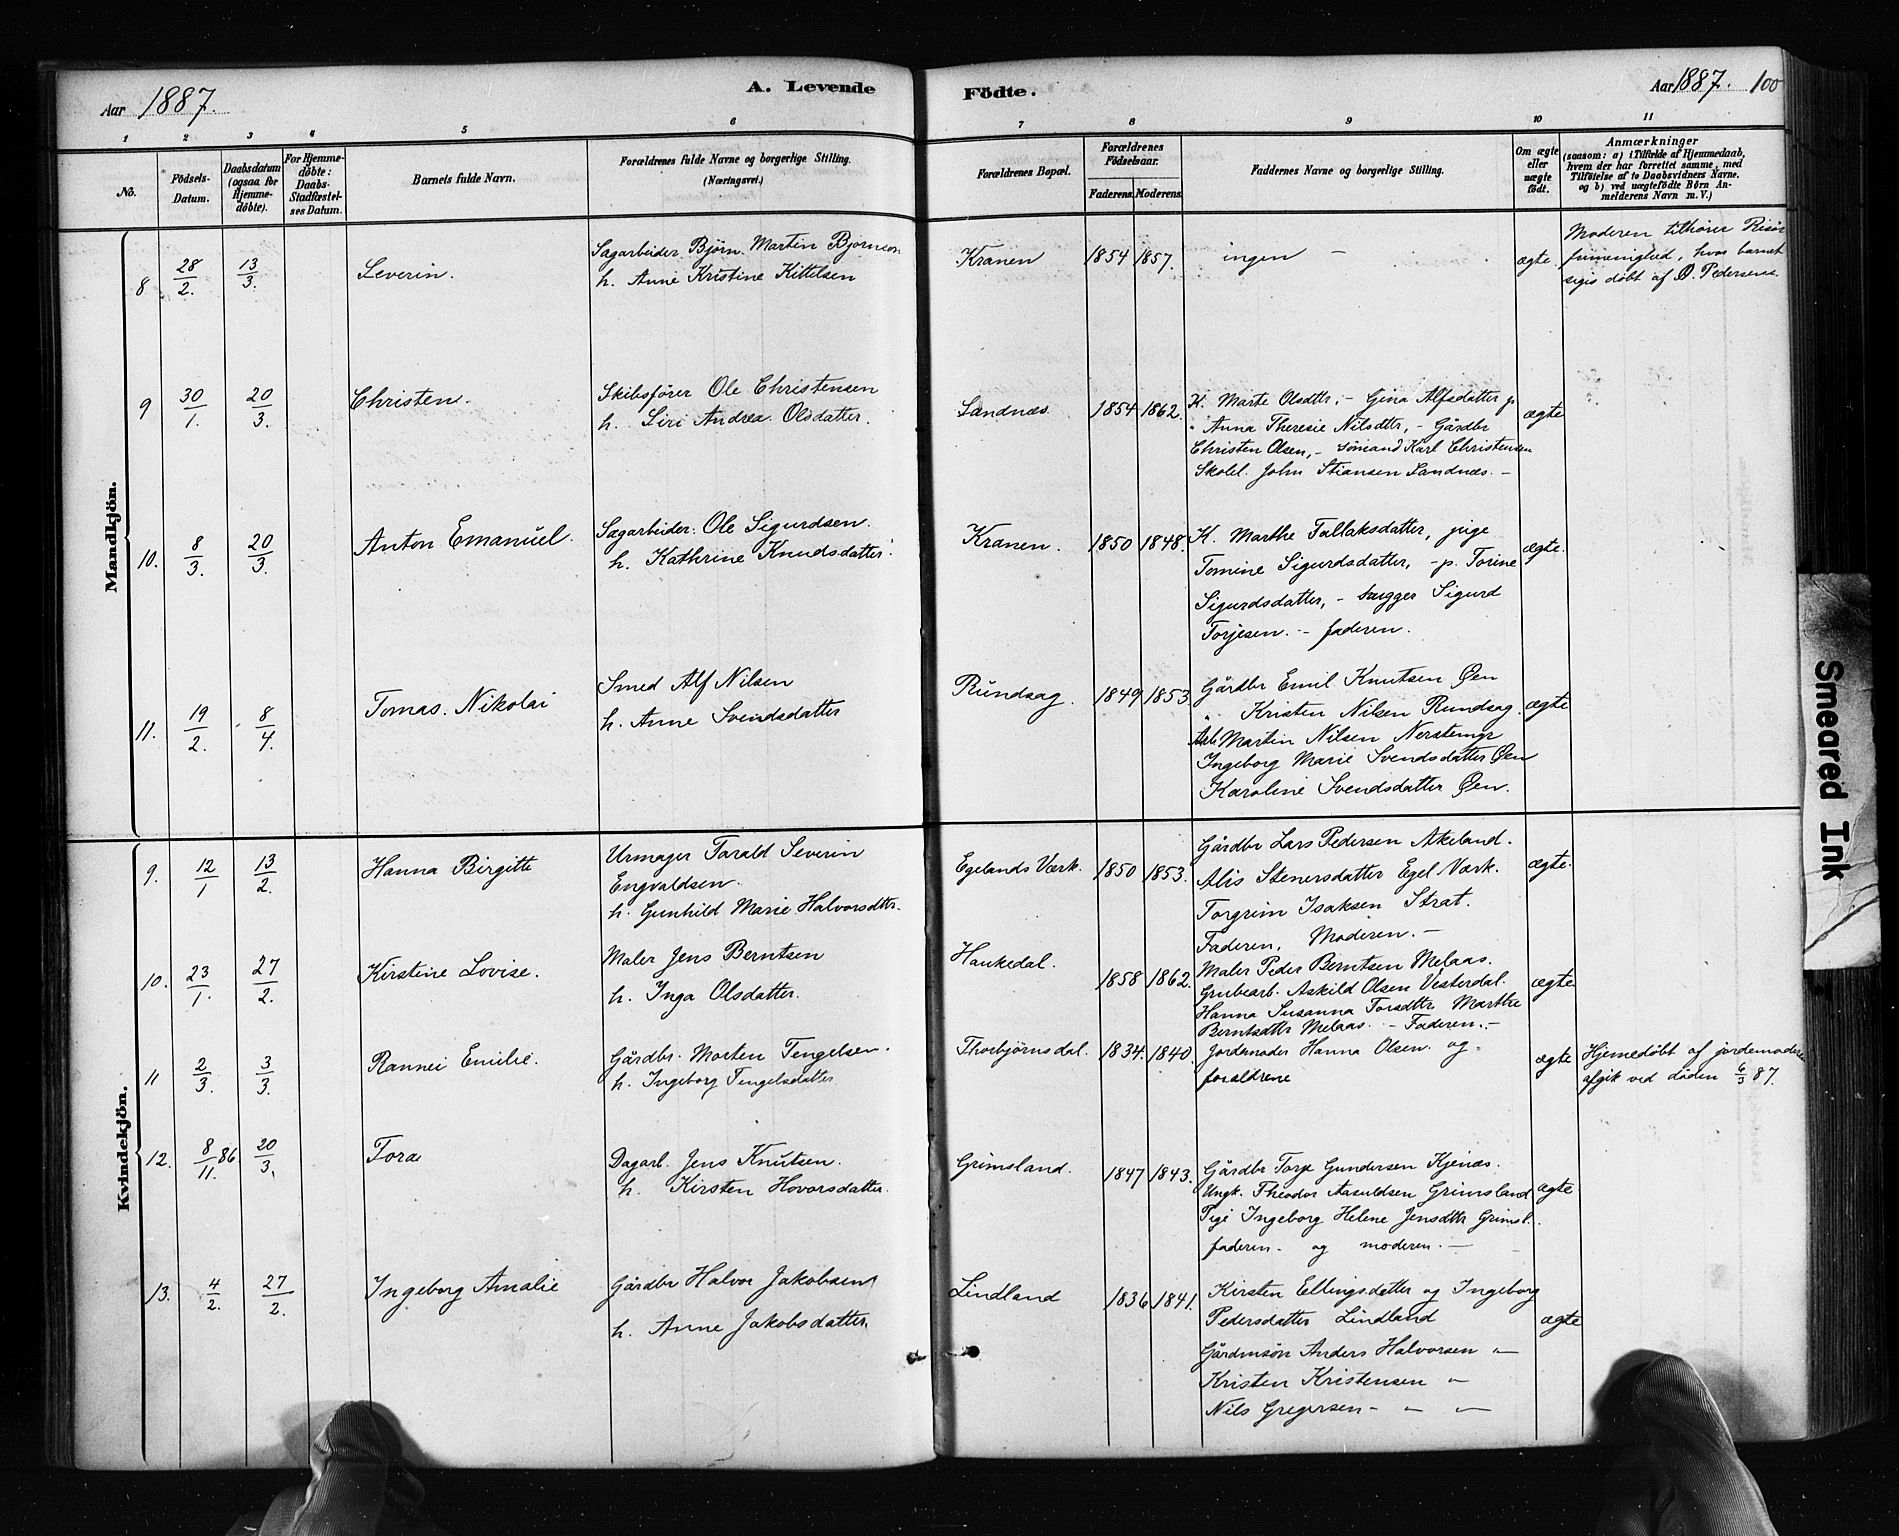 Aar 1887.
A. Levende
Födte.
Aar 1887. 100
1 2 3 4 5 6 7 8 9 10 11
No.
Födsels-Datum.
Daabsdatum (ogsaa for Hjemme-döbte).
For Hjemme-døbte: Daabs-Stadfæstel-ses Datum.
Barnets fulde Navn.
Forældrenes fulde Navne og borgerlige Stilling. (Næringsvei.)
Forældrenes Bopæl.
Forældrenes Födselsaar.
Faderens. Moderens.
Faddernes Navne og borgerlige Stilling.
Om ægte eller uægte födt.
Anmærkninger
(saasom: a) i Tilfælde af Hjemmedaab,
hvem der har forrettet samme, med
Tilföielse af to Daabsvidners Navne.
og b) ved uægtefödte Börn An-
melderens Navn m. V.)
Mandkjön.
8 28/2. 13/3. Severin. Sagarbeider Bjørn Martin Bjørnsen
h. Anne Kristine Kittelsen
Kranen 1854 1857. ingen - ægte.
Moderen tilhører Risør
frimenighed, hvor barnet
siges døbt af O. Pedersens.
9 30/1. 20/3. Christen. Skibsfører Ole Christensen
h. Siri Andrea Olsdatter.
Sandnæs. 1854 1862. K. Marte Olsdtr, - Gina Alfsdatter p
" Anna Theresie Nilsdtr, - Gårdbr
Christen Olsen, - sømand Karl Christensen
Skolel. John Stiansen Sandnæs. -
ægte
10. 8/3. 20/3. Anton Emanuel. Sagarbeider. Ole Sigurdsen.
h. Kathrine Knudsdatter.
Kranen. 1850 1848. K. Marthe Tallaksdatter, pige
Tomine Sigurdsdatter, - p. Torine
Sigurdsdatter, - Sigurd
Torjesen. - faderen.
ægte.
11. 19/2. 8/4. Tomas. Nikolai Smed Alf Nilsen
h. Anne Svendsdatter
Rundsag. 1849 1853 Gårdbr Emil Knutsen Øen
" Kristen Nilsen Rundsag.
Arb Martin Nilsen Nerstemyr
Ingeborg Marie Svendsdatter Øen
Karoline Svendsdatter Øen.
ægte
Kvindekjön.
9. 12/1 13/2. Hanna Birgitte Urmager Tarald Severin
Engvaldsen.
h. Gunhild Marie Halvorsdtr.
Egelands Værk. 1850 1853. Gårdbr Lars Pedersen Akeland.
Alis Stenersdatter Egel Værk.
Torgrim Isaksen Strat.
Faderen, Moderen. -
ægte.
10. 23/1. 27/2. Kirstine Lovise. Maler Jens Berntsen
h. Inga Olsdatter.
Haukedal. 1858 1862. Maler Peder Berntsen Melaas.
Grubearb. Askild Olsen Vesterdal.
Hanna Susanna Torsdtr Marthe
Berntsdtr Melaas. - Faderen. -
ægte
11 2/3. 3/3. Rannei Emilie. Gårdbr. Morten Tengelsen.
h. Ingeborg Tengelsdatter
Thorbjørnsdal. 1834. 1840. Jordmoder Hanna Olsen. og
forældrene
ægte
Hjemedøbt af jordemoder
afgik ved døden 6/3 87.
12. 8/11. 86 20/3. Tora Dagarb. Jens Knutsen.
h. Kirsten Hovorsdatter.
Grimsland. 1847 1843. Gårdbr Torje Gundersen Kjenæs.
Ungk. Theodor Aasuldsen Grimsland
Pige Ingeborg Helene Jensdtr Grimsl.
faderen. og moderen. -
ægte
13. 4/2. 27/2. Ingeborg Amalie Gårdbr Halvor Jakobsen
h. Anne Jakobsdatter.
Lindland 1836 1841. Kirsten Ellingsdatter og Ingeborg
Pedersdatter Lindland
Gårdmsøn Anders Halvorsen "
Kristen Kristensen "
Nils Gregersen - " "
ægte
Smeared Ink